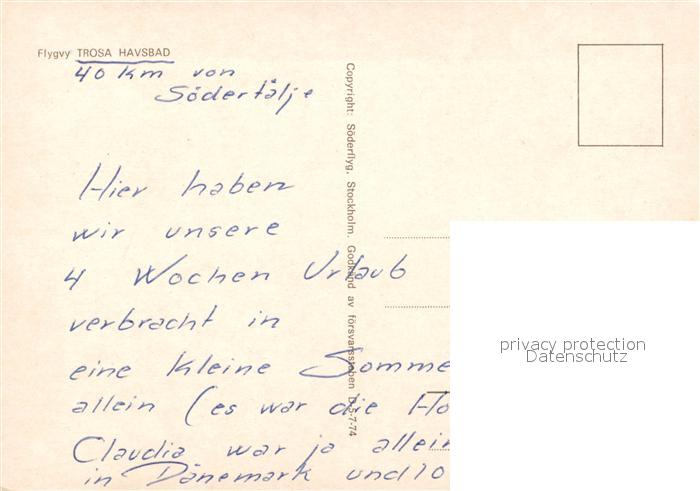 Flygvy TROSA HAVSBAD
40 km von
Södertälje
Hier haben
wir unsere
4 Wochen Urlaub
verbracht in
eine kleine Somme
allein (es war die Ho
Claudia war ja allein
in Dänemark und 10
Copyright: Söderflyg, Stockholm. Godkänd av försvarsstaben 5-7-74
privacy protection
Datenschutz